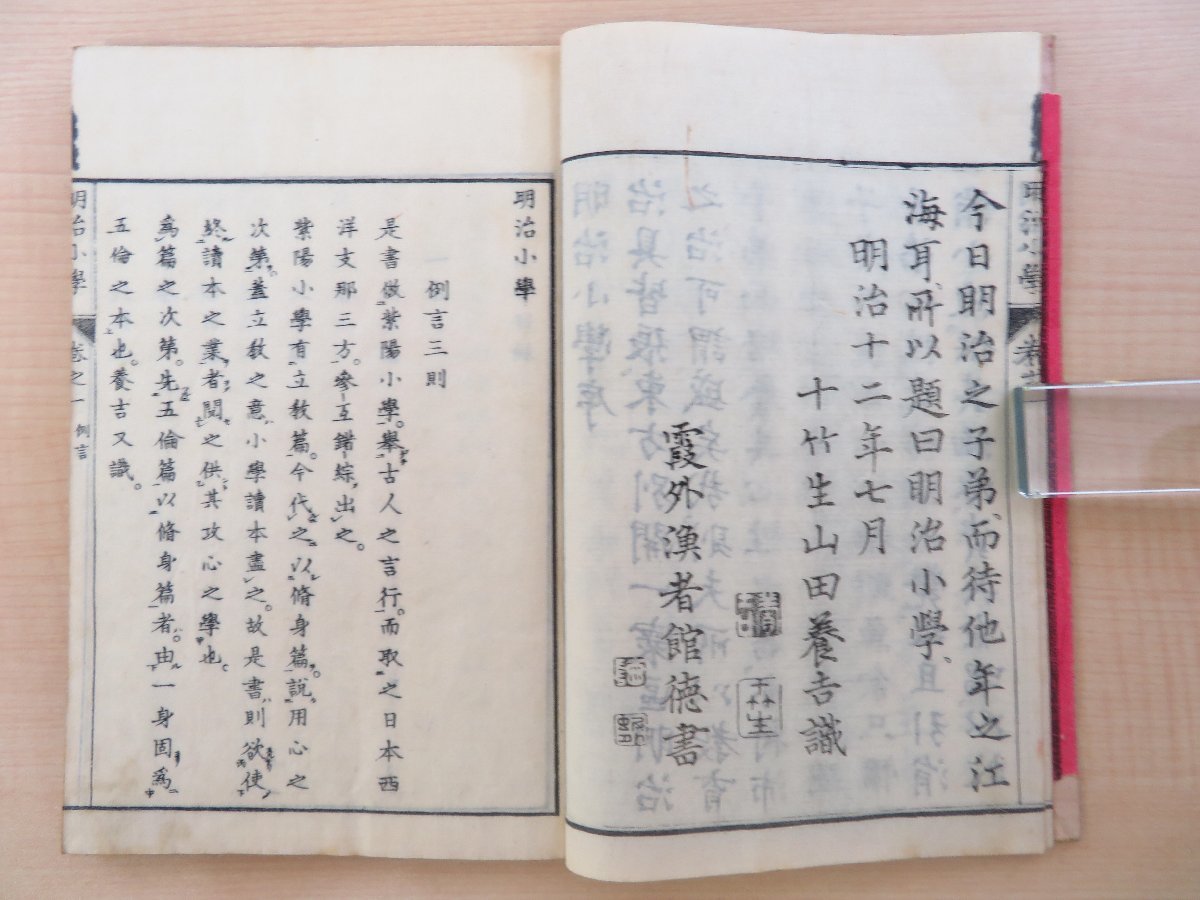 今日明治之子弟、而待他年之江
海耳、所以題曰明治小學、
明治十二年七月
十竹生山田養吉識
霞外漁者館德書
明治小學
例言三則
是書倣紫陽小學。擧古人之言行。而取之日本西
洋支那三方。參互錯綜出之。
紫陽小學有立敎篇。今代之以脩身篇。說用心之
次第。蓋立敎之意、小學讀本盡之。故是書則欲使
終讀本之業者閱之供其攻心之學也
爲篇之次第。先五倫篇以脩身篇者。由一身固爲
五倫之本也。養吉又識。
明治小學 卷之一 例言